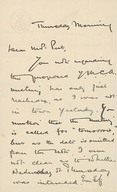 Thursday Morning
Dear Mr. Peet,
Your note regarding
the proposed Y.M.C.A.
meeting has only just
reached me, as I was not
in town yesterday. You
mention that the meeting
is called for "tomorrow"
but as the date is omitted
from the note I am
not clear as to whether
Wednesday or Thursday
was intended